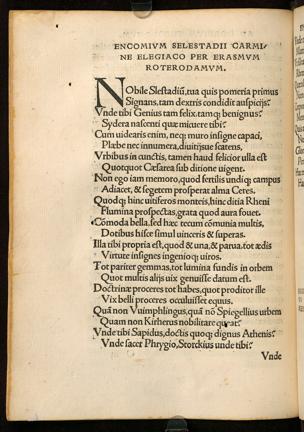 ENCOMIVM SELESTADII CARMI/
NE ELEGIACO PER ERASMVM
ROTERODAMVM.
NObile Slestadiũ, tua quis pomeria primus
Signans, tam dextris condidit auspicijs?
Vnde tibi Genius tam felix, tamq; benignus?
Sydera nascenti quæ micuere tibi?
Cum uidearis enim, neq; muro insigne capaci,
Plæbe nec innumera, diuitijsue scatens,
Vrbibus in cunctis, tamen haud felicior ulla est
Quotquot Cæsarea sub ditione uigent.
Non ego iam memoro, quod fertilis undiq; campus
Adiacet, & segetem prosperat alma Ceres.
Quodq; hinc uitiferos monteis, hinc ditia Rheni
Flumina prospectas, grata quod aura fouet.
Cõmoda bella, sed hæc tecum cõmunia multis,
Dotibus hisce simul uinceris & superas.
Illa tibi propria est, quod & una, & parua, tot ædis
Virtute insignes ingenioq; uiros.
Tot pariter gemmas, tot lumina fundis in orbem
Quot multis alijs uix genuisse datum est.
Doctrinæ proceres tot habes, quot proditor ille
Vix belli proceres occuluisset equus.
Quã non Vuimphlingus, quã nõ Spiegellius urbem
Quam non Kirherus nobilitare queat?
Vnde tibi Sapidus, doctis quoq; dignus Athenis?
Vnde sacer Phrygio, Storckius unde tibi?
Vnde